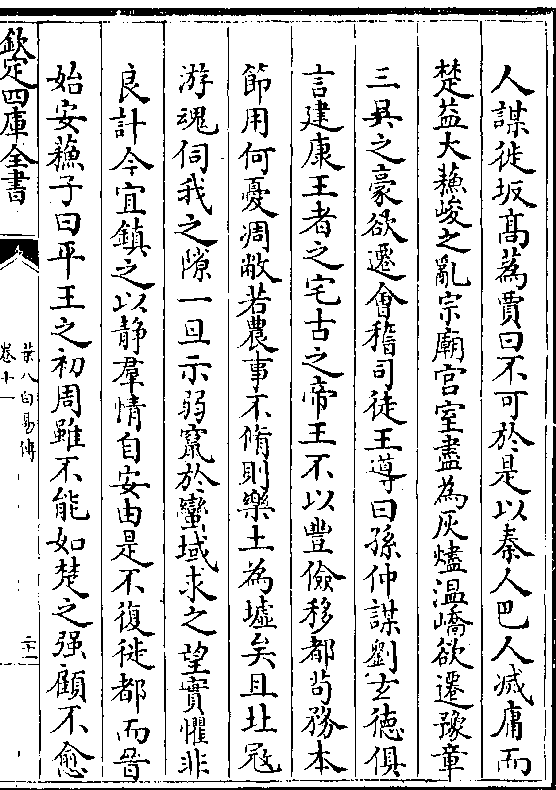 人謀徙坂髙蒍賈曰不可於是以秦人巴人滅庸而
楚益大蘓峻之亂宗廟宫室盡為灰燼温嶠欲遷豫章
三吳之豪欲遷會稽司徒王導曰孫仲謀劉玄徳俱
言建康王者之宅古之帝王不以豐儉移都茍務本
節用何憂凋敝若農事不脩則樂土為墟矣且北冦
游魂伺我之隙一旦示弱竄於蠻域求之望實懼非
良計今宜鎮之以静羣情自安由是不復徙都而晉
始安蘓子曰平王之初周雖不能如楚之强顧不愈
欽定四庫全書
葉八白易傳
卷十一
二十一